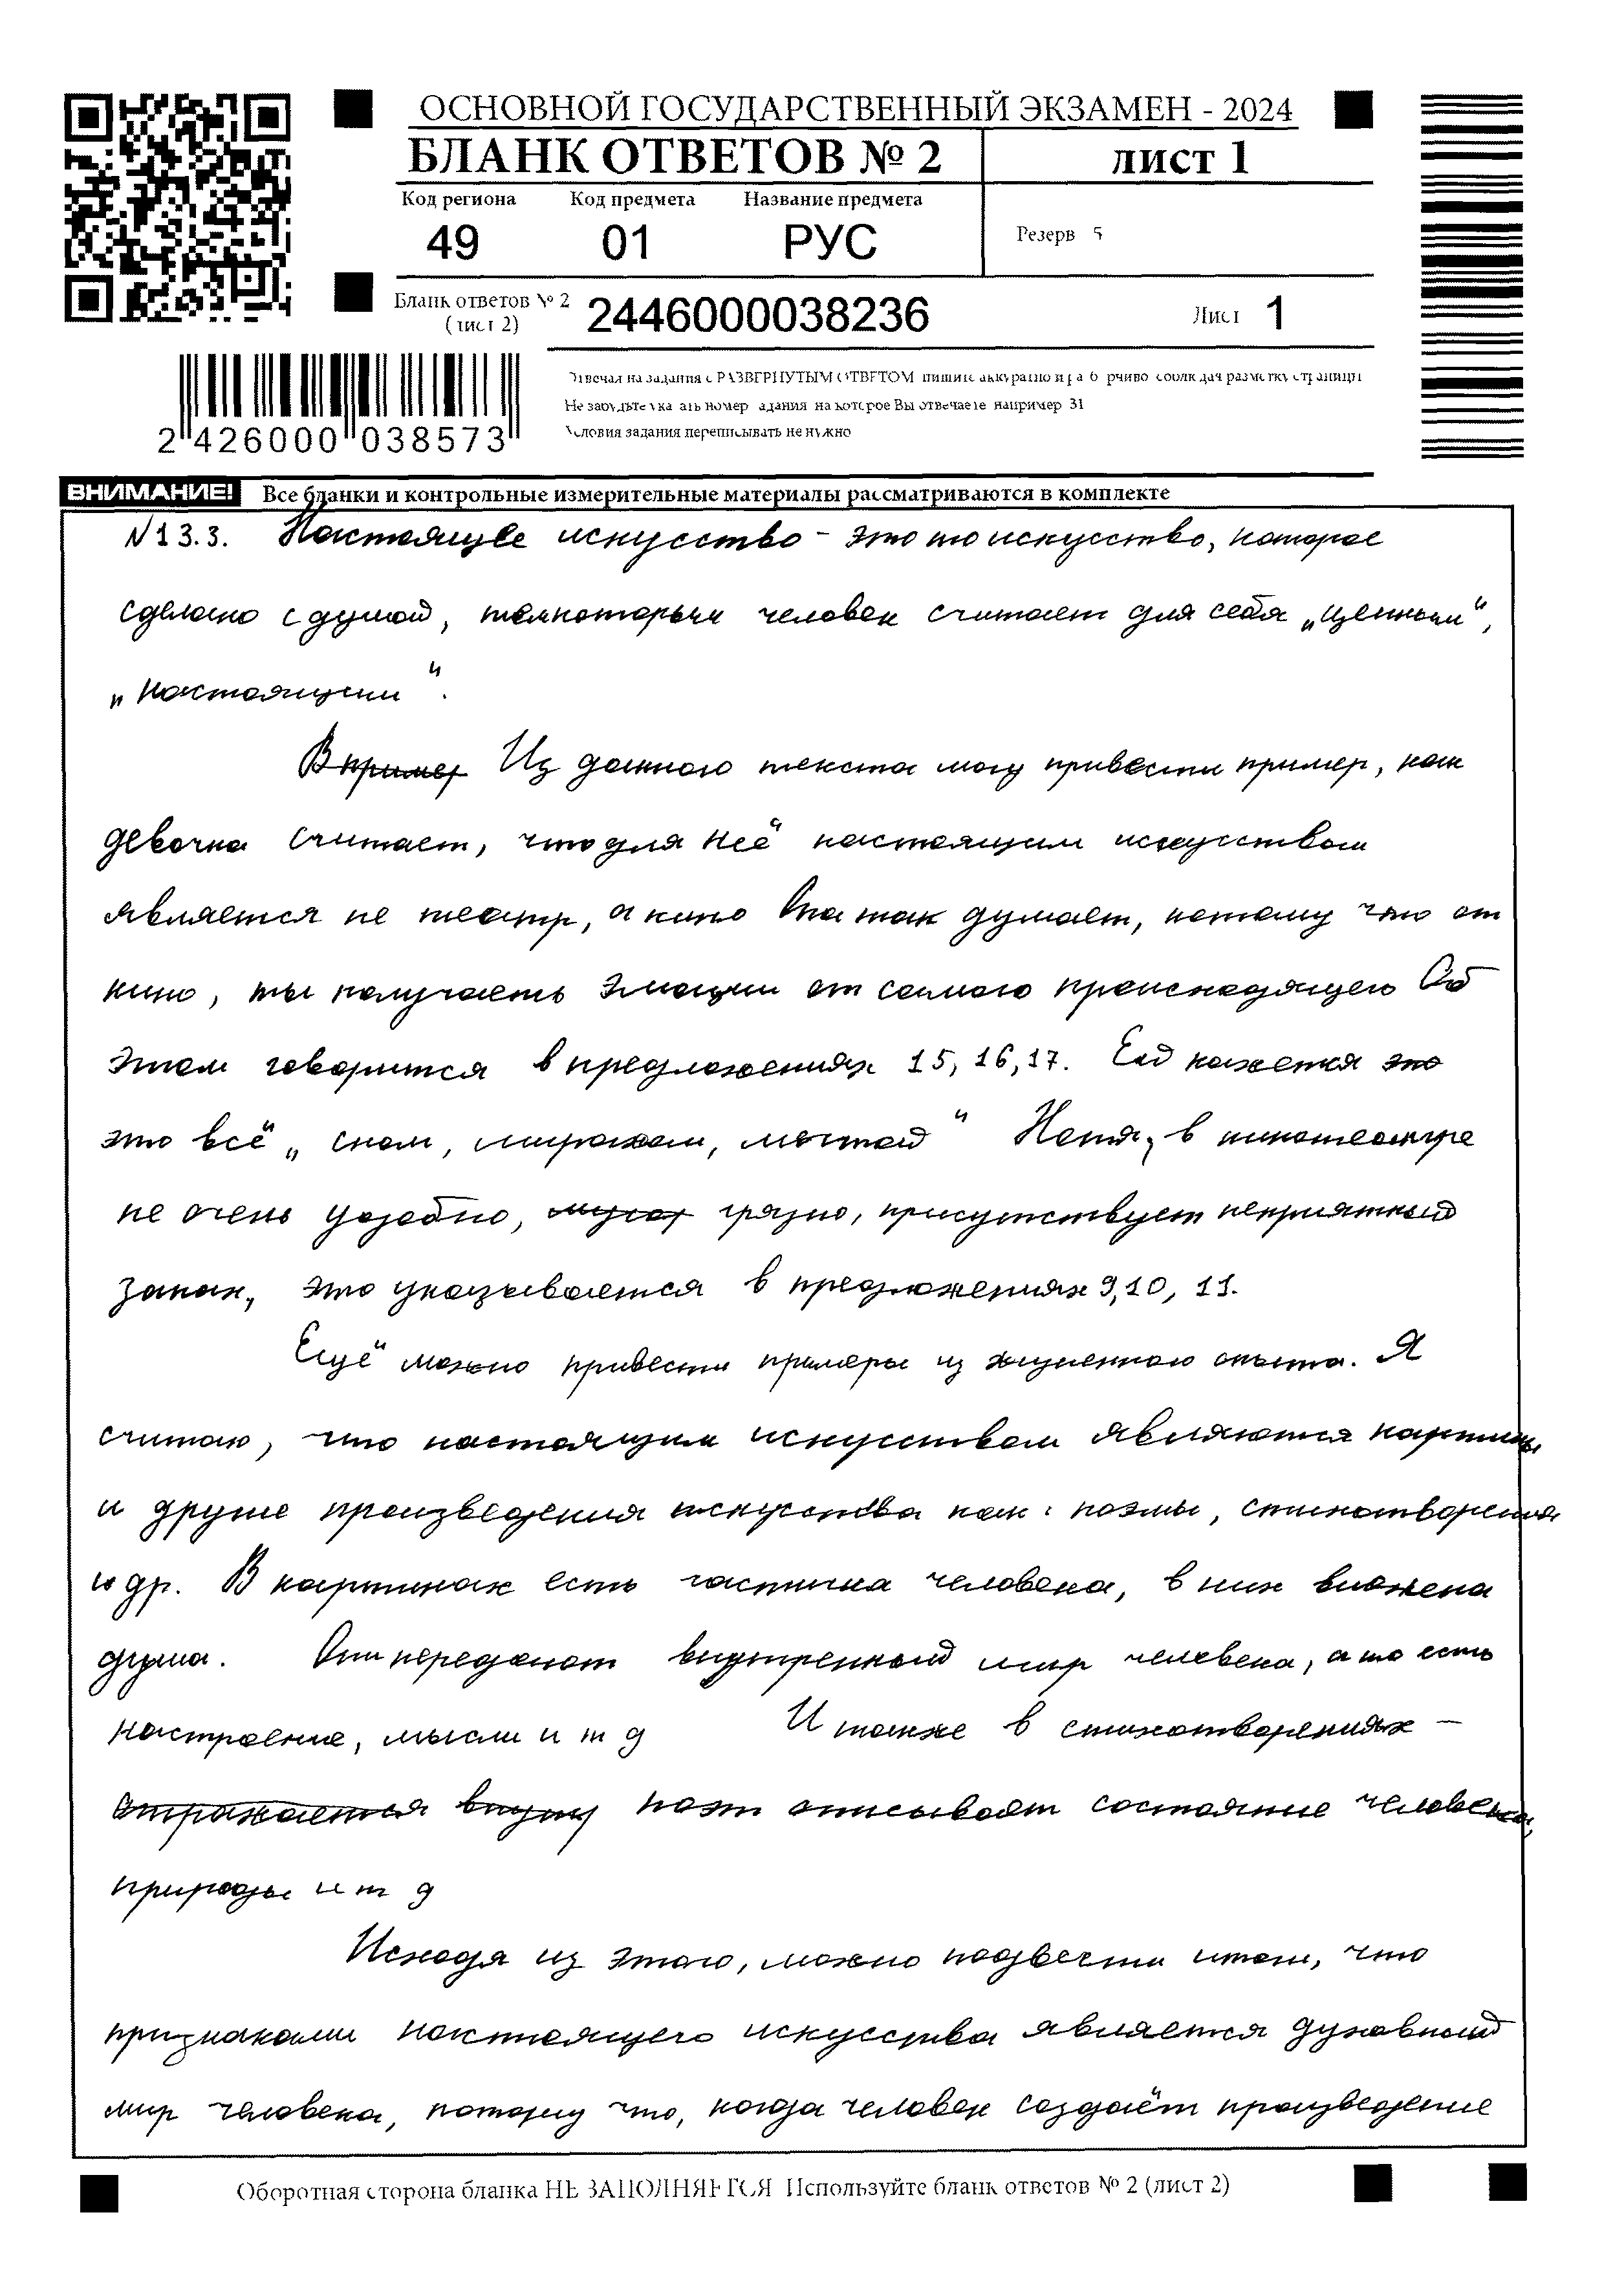 ОСНОВНОЙ ГОСУДАРСТВЕННЫЙ ЭКЗАМЕН - 2024
БЛАНК ОТВЕТОВ № 2
лист 1
Код региона Код предмета Название предмета
49 01 РУС
Резерв 5
Бланк ответов № 2
(лист 2)
2446000038236
Лист 1
2 426000 038573
Отвечая на задания с РАЗВЕРНУТЫМ ОТВЕТОМ пишите аккуратно и разборчиво соблюдая разметку страницы
Не забудьте указать номер задания на которое Вы отвечаете например 31
Условия задания переписывать не нужно
ВНИМАНИЕ! Все бланки и контрольные измерительные материалы рассматриваются в комплекте
№13.3. Настоящее искусство - это то искусство, которое
сделано с душой, человек считает для себя „ценным“,
„настоящим“.
В пример Из данного текста могу привести пример, как
девочка считает, что для неё настоящим искусством
является не театр, а кино Она так думает, потому что от
кино, ты получаешь эмоции от самого происходящего Об
этом говорится в предложениях 15, 16, 17. Ей кажется это
это всё „ сном, миражом, мечтой “ Хотя, в кинотеатре
не очень удобно, грязно, присутствует неприятный
запах, это указывается в предложениях 9, 10, 11.
Ещё можно привести примеры из жизненного опыта. Я
считаю, что настоящим искусством являются картины
и другие произведения искусства как : поэмы, стихотворения
и др. В картинах есть частичка человека, в них вложена
душа. Они передают внутренний мир человека, а то есть
настроение, мысли и т д И также в стихотворениях -
отражается внутр поэт описывает состояние человека,
природы и т д
Исходя из этого, можно подвести итог, что
признаками настоящего искусства является духовный
мир человека, потому что, когда человек создаёт произведение
Оборотная сторона бланка НЕ ЗАПОЛНЯЕТСЯ Используйте бланк ответов № 2 (лист 2)